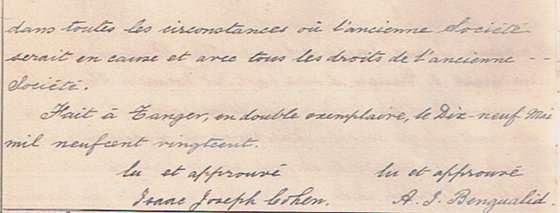 dans toutes les circonstances où l'ancienne Société
serait en cause et avec tous les droits de l'ancienne --
Société.
Fait à Tanger, en double exemplaire, le Dix-neuf Mai
mil neufcent vingtcent.
lu et approuvé lu et approuvé
Isaac Joseph Cohen. A. J. Benqualid